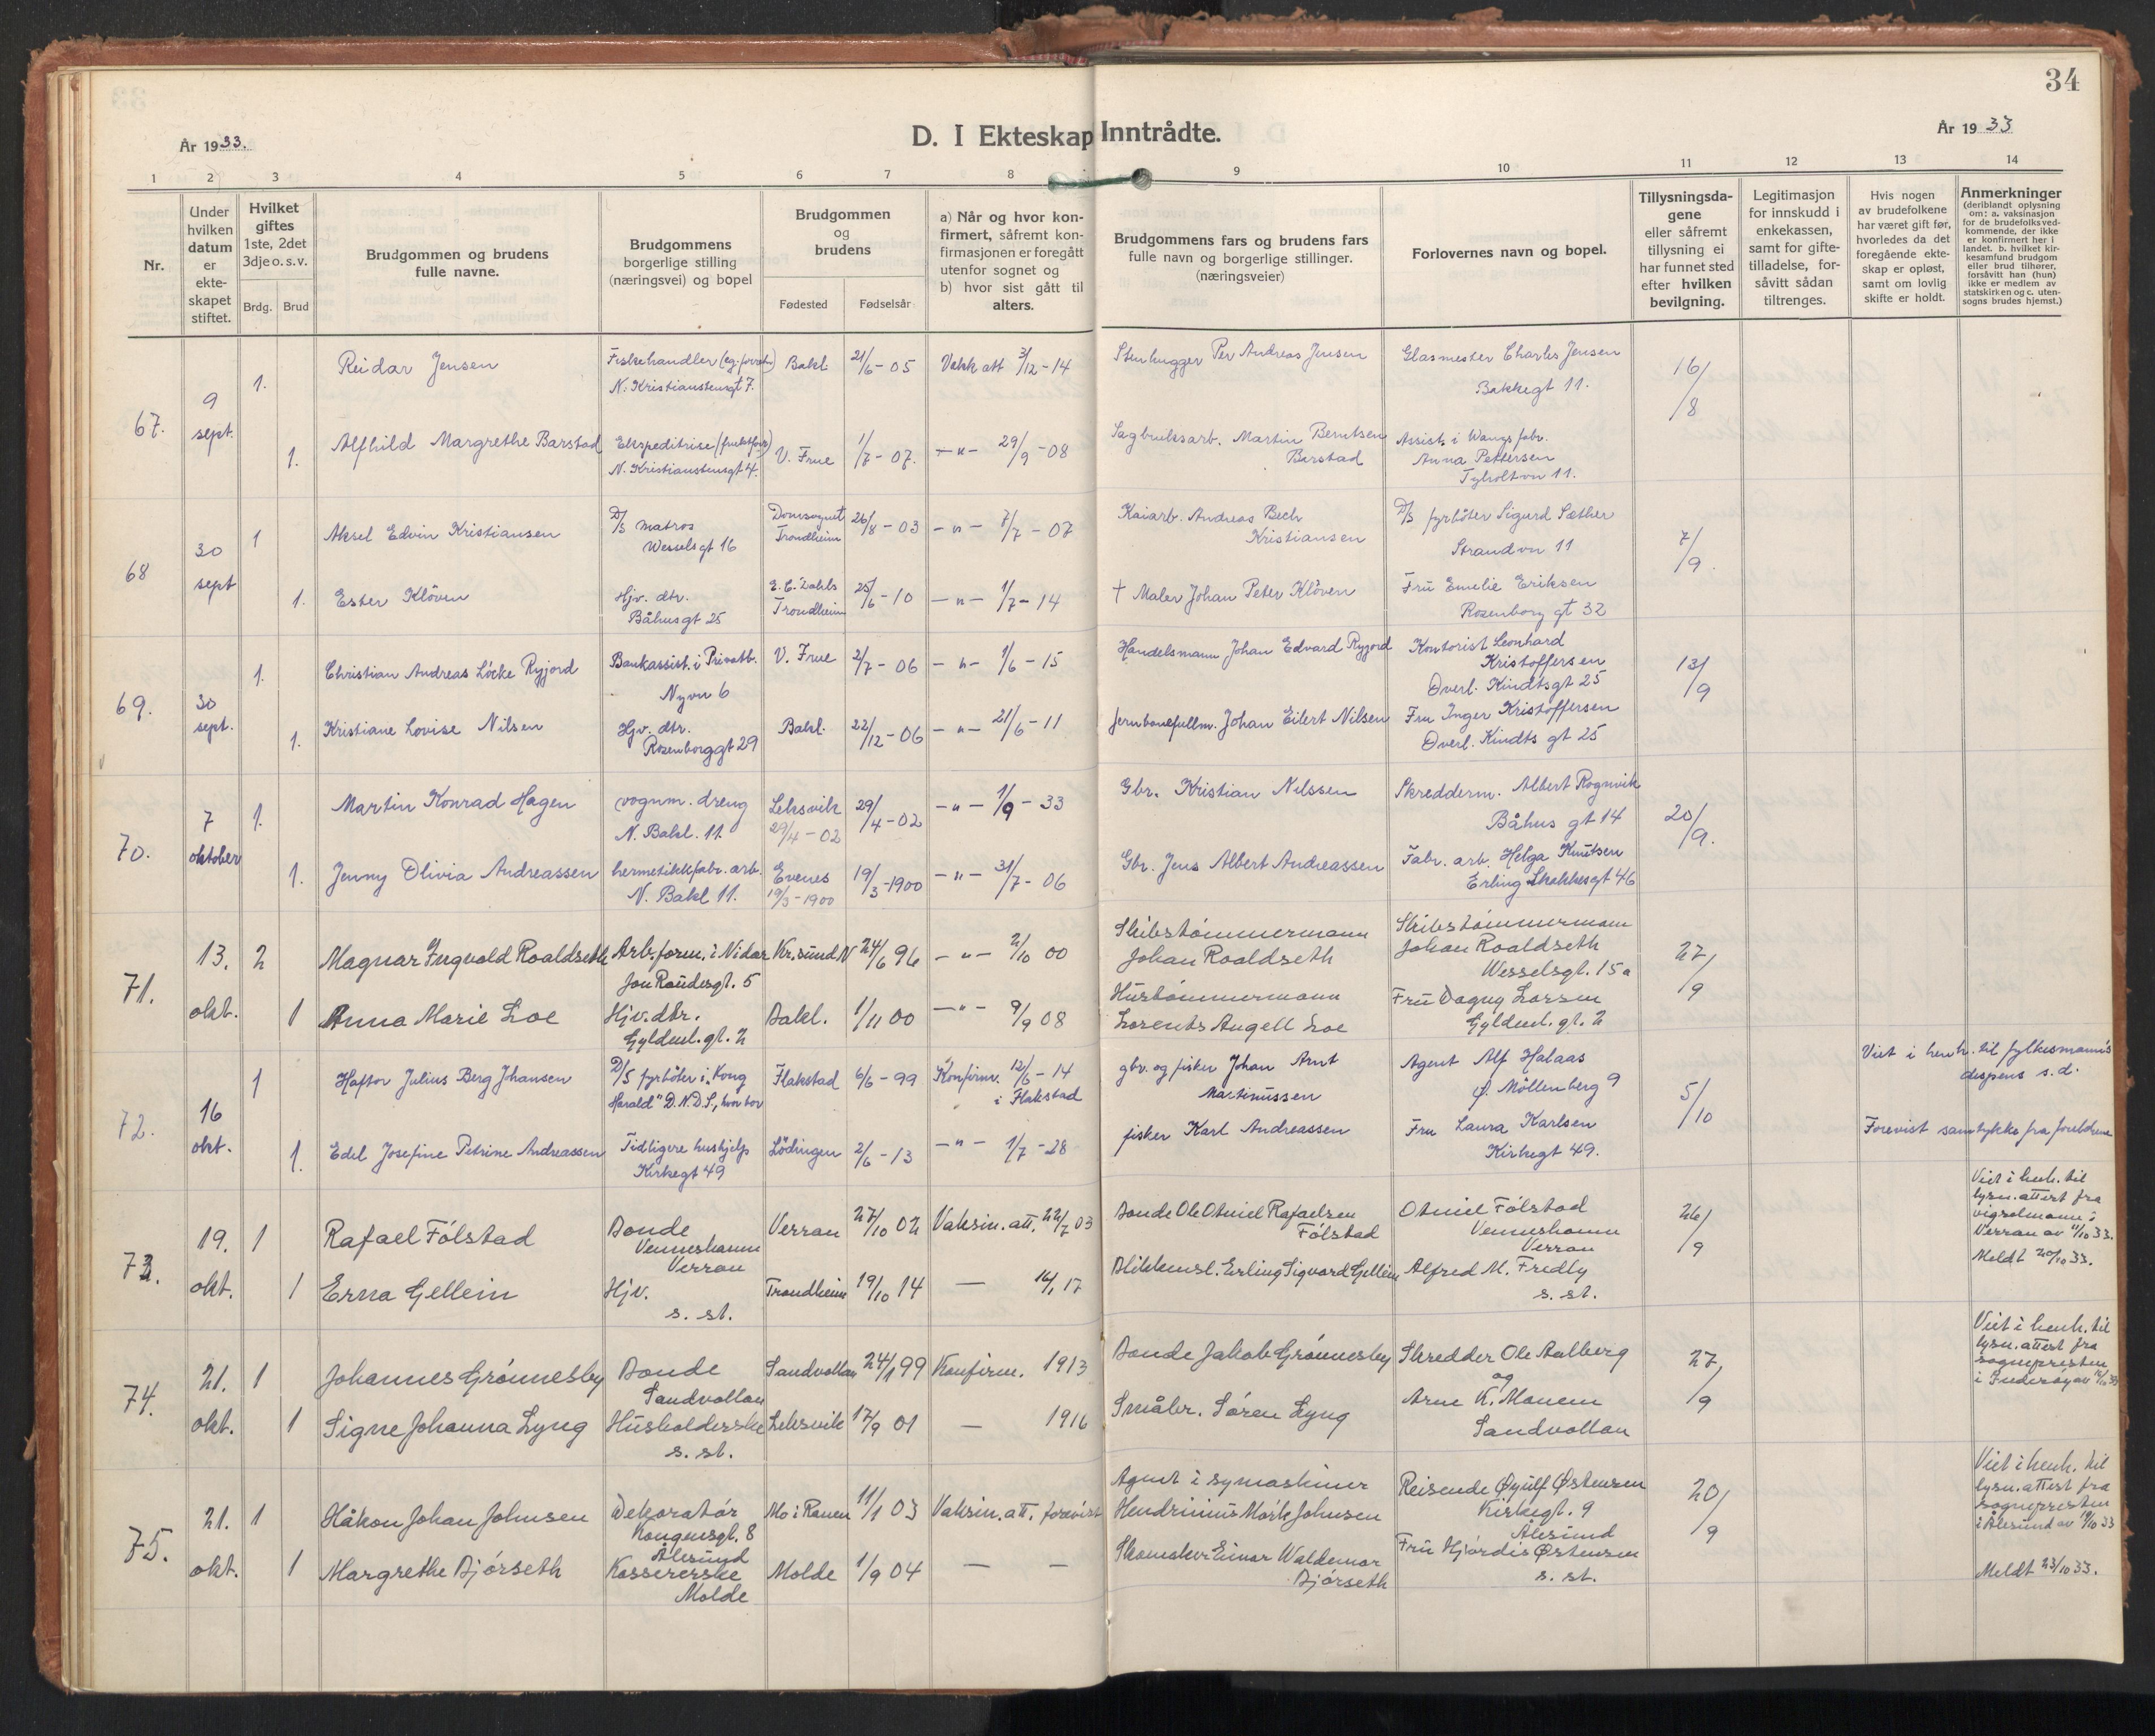 34
År 1933.
D. I Ekteskap Inntrådte.
År 1933
1 2 3 4 5 6 7 8 9 10 11 12 13 14
Nr.
Under hvilken datum er ekte-skapet stiftet.
Hvilket giftes 1ste, 2det 3dje o.s.v.
Brdg. Brud
Brudgommen og brudens fulle navne.
Brudgommens borgerlige stilling (næringsvei) og bopel
Brudgommen og brudens
Fødested Fødselsår
a) Når og hvor kon-firmert, såfremt kon-firmasjonen er foregått utenfor sognet og b) hvor sist gått til alters.
Brudgommens fars og brudens fars fulle navn og borgerlige stillinger. (næringsveier)
Forlovernes navn og bopel.
Tillysningsda-gene eller såfremt tillysning ei har funnet sted efter hvilken bevilgning.
Legitimasjon for innskudd i enkekassen, samt for gifte-tilladelse, for-såvitt sådan tiltrenges.
Hvis nogen av brudefolkene har været gift før, hvorledes da det foregående ekte-skap er opløst, samt om lovlig skifte er holdt.
Anmerkninger (deriblandt oplysning om: a. vaksinasjon for de brudefolksved-kommende, der ikke er konfirmert her i landet. b. hvilket kir-kesamfund brudgom eller brud tilhører, forsåvitt han (hun) ikke er medlem av statskirken og c. uten-sogns brudes hjemst.)
67. 9 sept.
1. Reidar Jensen Fiskehandler (eg. forretn.) Bakl. 21/6-05 Vakk att 3/12-14 Stenhugger Per Andreas Jensen Glasmester Charles Jensen 16/8
N. Kristianstensgt 7. Bakkegt 11.
1. Alfhild Margrethe Barstad Ekspeditrise V. Frue 1/7-07. -"- 29/9-08 Sagbruksarb. Martin Berntsen Assist. i Wangs fabr.
N. Kristianstensgt 4. Barstad Anna Pettersen
Tyholtvn 11.
68 30 sept
1 Aksel Edvin Kristiansen D/S matros Domsognet 26/8-03 -"- 7/7-07 Kaiarb. Andreas Bech D/S fyrbøter Sigurd Sæther 7/9.
Wesselsgt 16 Trondheim Kristiansen Strandvn 11
1. Ester Klöven Hjv. dtr. E. C. Dahls 25/6-10 -"- 1/7-14 † Maler Johan Peter Klöven Fru Emelie Eriksen
Båhusgt 25 Trondheim Rosenborg gt 32
69. 30 sept.
1. Christian Andreas Löcke Ryjord Bankassist. i Privatb. V. Frue 2/7-06 -"- 1/6-15 Handelsmann Johan Edvard Ryjord Kontorist Leonhard 13/9
Nyvn 6 Kristoffersen
Overl. Kindtsgt 25
1. Kristiane Lovise Nilsen Hjv. dtr. Bakl. 22/12-06 -"- 21/6-11 Jernbanefullm. Johan Eilert Nilsen Fru Inger Kristoffersen
Rosenborggt 29 Overl. Kindts gt 25
70. 7 oktober
1. Martin Konrad Hagen vognm. dreng Leksvik 29/4-02 -"- 1/9-33 Gbr. Kristian Nilssen Skredderm. Albert Rognvik 20/9.
N. Bakl. 11. 29/4-02 Båhus gt 14
1. Jenny Olivia Andreassen hermetikkfabr. arb. Evenes 19/3-1900 -"- 31/7-06 Gbr. Jens Albert Andreassen Fabr. arb. Helga Knutsen
N. Bakl 11. 19/3-1900 Erling Skakkesgt 46
71. 13. okt.
2 Magnar Ingvald Roaldseth Arb.form. i Nidar Kr.sund N 24/6 96 -"- 2/10 00 Skibstømmermann Skibstømmermann 27/9
Jon Raudesgt. 5 Johan Roaldseth Johan Roaldseth
Wesselsgt. 15a
1 Anna Marie Loe Hjv. dtr. Bakl. 1/11 00 -"- 9/9 08 Hustømmermann Fru Dagny Larsen
Gyldenl. gt. 2 Lorents Angell Loe Gyldenl. gt. 2
72. 16 okt.
1 Haftor Julius Berg Jhansen D/S fyrbøter i "Kong Flakstad 6/6-99 Konfirm. 12/6-14 gbr. og fisker Johan Arnt Agent Alf Halaas 5/10 Viet i henh. til fylkesmann's
Harald" D.N.D.S., hvor bor i Flakstad Martinussen Ø. Möllenberg 9 dispens s.d.
1. Edel Josefine Petrine Andreassen Tidligere hushjelp Lödingen 2/6-13 -"- 1/7-28 fisker Karl Andreassen Fru Laura Karlsen Forevist samtykke fra foreldrene
Kirkegt 49 Kirkegt 49.
73. 19. okt.
1 Rafael Følstad Bonde Verran 27/10 02 Vaksin. att. 22/7 03 Bonde Ole Otniel Rafaelsen Otniel Følstad 26/9 Viet i henh. til
Venneshamn Følstad Venneshamn lysn.attest fra
Verran Verran vigselmann i
Verran av 11/10 33.
1 Erna Gellein Hjv. Trondheim 19/10 14 — 14/1 17 Blikkensl. Erling Sigvard Gellein Alfred M. Fredly Meldt 20/10 33.
s. st. s. st.
74. 21. okt.
1 Johannes Grønnesby Bonde Sandvollan 24/1 99 Konfirm. 1913 Bonde Jakob Grønnesby Skredder Ole Aalberg 27/9 Viet i henh. til
Sandvollan og lysn.attest fra
sognepresten
1 Signe Johanna Lyng Husholderske Leksvik 17/9 01 — 1916 Småbr. Søren Lyng Arne K. Mouem i Inderøy av
s. st. Sandvollan
75. 21. okt.
1 Håkon Johan Johnsen Dekoratør Mo i Ranen 11/1 03 Vaksin. att. forevist Agent i symaskiner Reisende Øyulf Østensen 20/9 Viet i henh. til
Kongensgt. 8 Hendrinius Mørk Johnsen Kirkegt. 9 lysn.attest fra
Ålesund Ålesund sognepresten
i Ålesund av 19/10 33
1 Margrethe Bjørseth Kassererske Molde 1/9 04 — — Skomaker Einar Waldemar Fru Hjørdis Østensen
Molde Bjørseth s. st. Meldt 23/10 33.